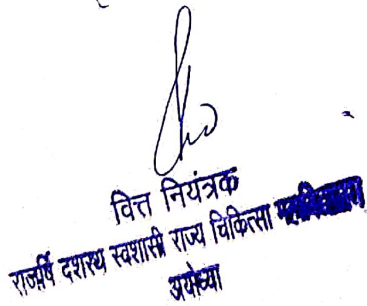 वित्त नियंत्रक
राजर्षि दशरथ स्वशासी राज्य चिकित्सा महाविद्यालय
अयोध्या